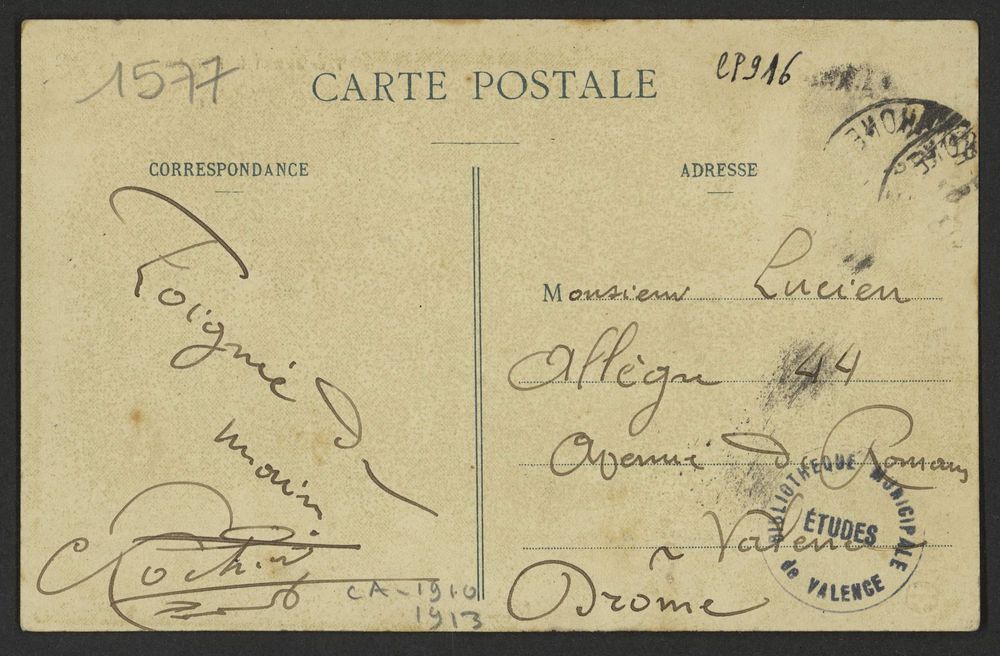 1577
CP916
CARTE POSTALE
CORRESPONDANCE
ADRESSE
Poigné De
main
Monsieur Lucien
Allègre 44
Avenue De Romans
Valence
Drome
BIBLIOTHEQUE MUNICIPALE
ÉTUDES
de VALENCE
CA-1910
1913